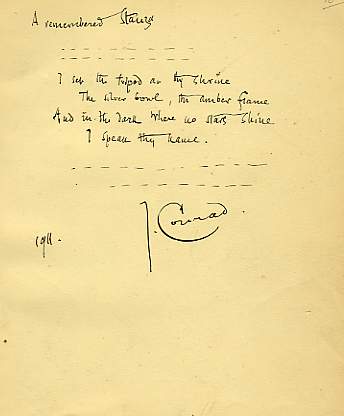 A remembered Stanza
I set the tripod at thy shrine
The silver bowl, the amber flame
And in the dark where no stars shine
I speak thy name.
J. Conrad.
1911.